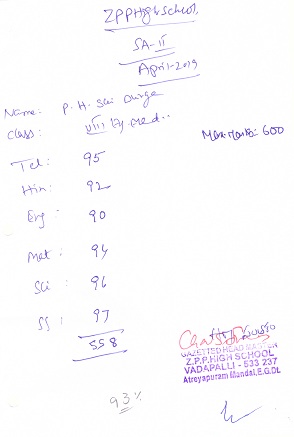 ZPPHigh School,
SA-II
April-2019
Name: P. H. Sai Durga
Class: VIII Ey Med..
Max-Marks: 600
Tel: 95
Hin: 92
Eng: 90
Mat: 94
Sci: 96
SS: 97
558
93%
GAZETTED HEAD MASTER
Z.P.P.HIGH SCHOOL
VADAPALLI - 533 237
Atreyapuram Mandal,E.G.Dt.